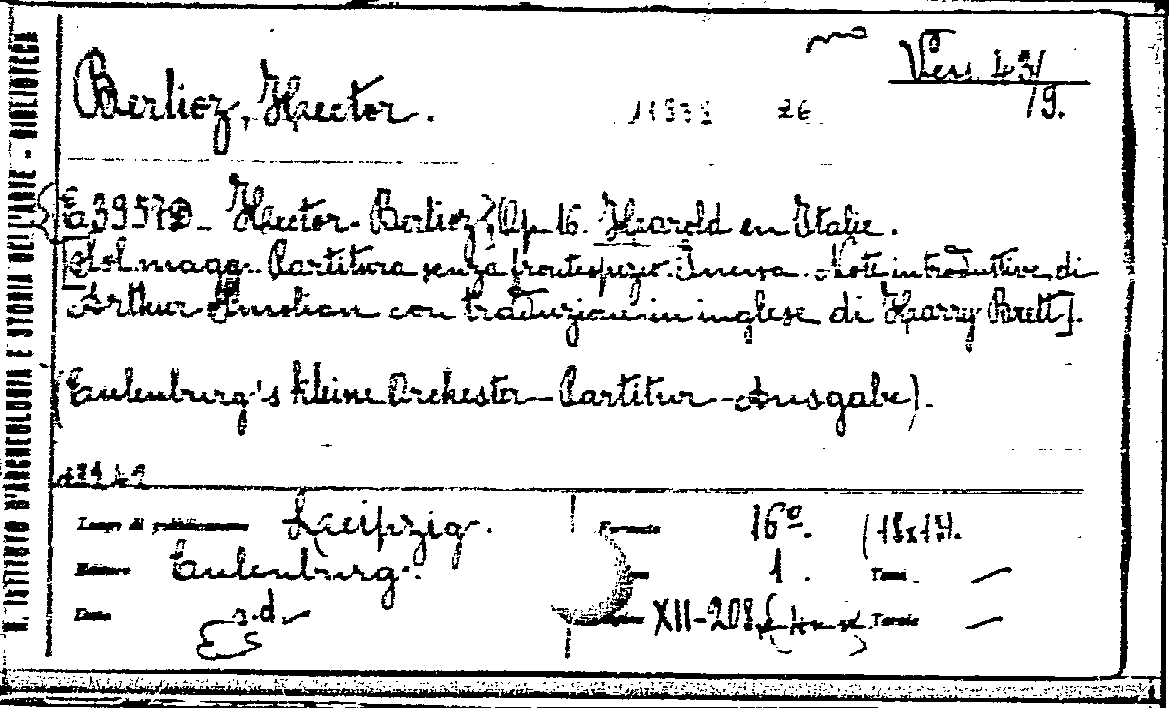 R. ISTITUTO D'ARCHEOLOGIA E STORIA DELL'ARTE - BIBLIOTECA
Vers. 43/
19.
Berlioz, Hector.
26
E. 3957 D. Hector Berlioz, Op. 16. Harold en Italie.
[Sol magg. Partitura senza frontespizio. Note introduttive di
Arthur Smolian con traduzione in inglese di Harry Brett].
(Eulenburg's kleine Orchester-Partitur-Ausgabe).
Luogo di pubblicazione Leipzig. Formato 16º. (18x13).
Editore Eulenburg. 1. Tomi —
Data s.d. XII-208 Tavole —